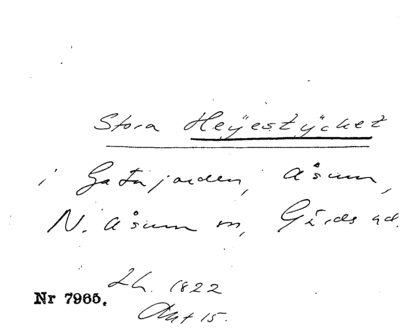 Stora Heÿestÿcket
i Gatajorden, Åsum,
N. Åsum sn, Gärds hd.
Lh. 1822
Akt 15.
Nr 7965.